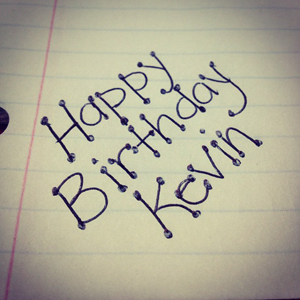 Happy
Birthday
Kevin